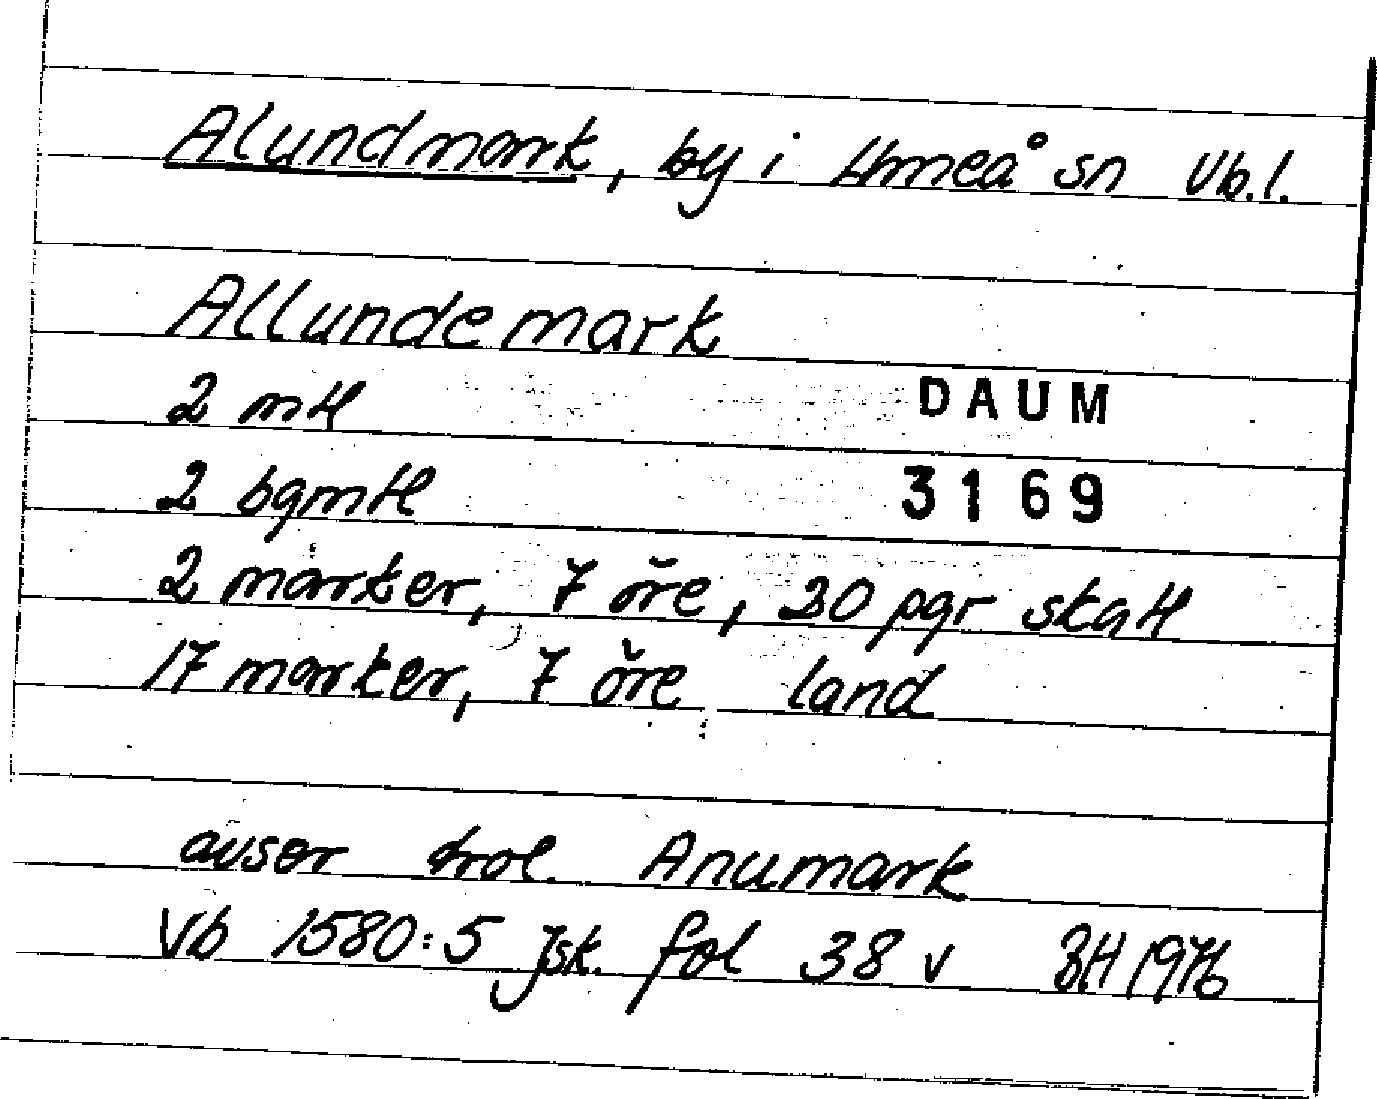 Alundmark, by i Umeå sn Vb.l.
Allundemark
2 mtl
DAUM
2 bgmtl
3169
2 marker, 7 öre, 20 pgr skatt
17 marker, 7 öre land
avser trol. Anumark
Vb 1580:5 Jsk. fol 38 v BH 1976